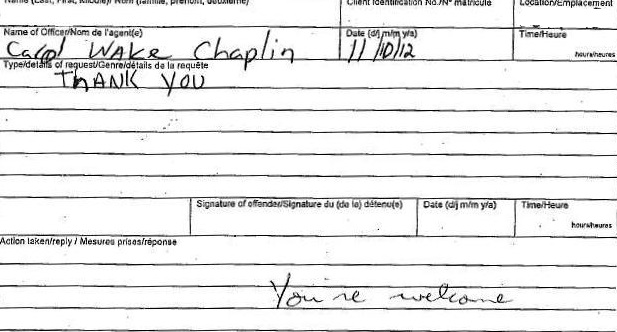 Name (Last, First, Middle)/ Nom (famille, prénom, deuxième)
Client Identification No./N° matricule
Location/Emplacement
Name of Officer/Nom de l'agent(e)
Carol WAKE Chaplin
Date (d/j m/m y/a)
11/10/12
Time/Heure
hours/heures
Type/details of request/Genre/détails de la requête
THANK YOU
Signature of offender/Signature du (de la) détenu(e)
Date (d/j m/m y/a)
Time/Heure
hours/heures
Action taken/reply / Mesures prises/réponse
You're welcome